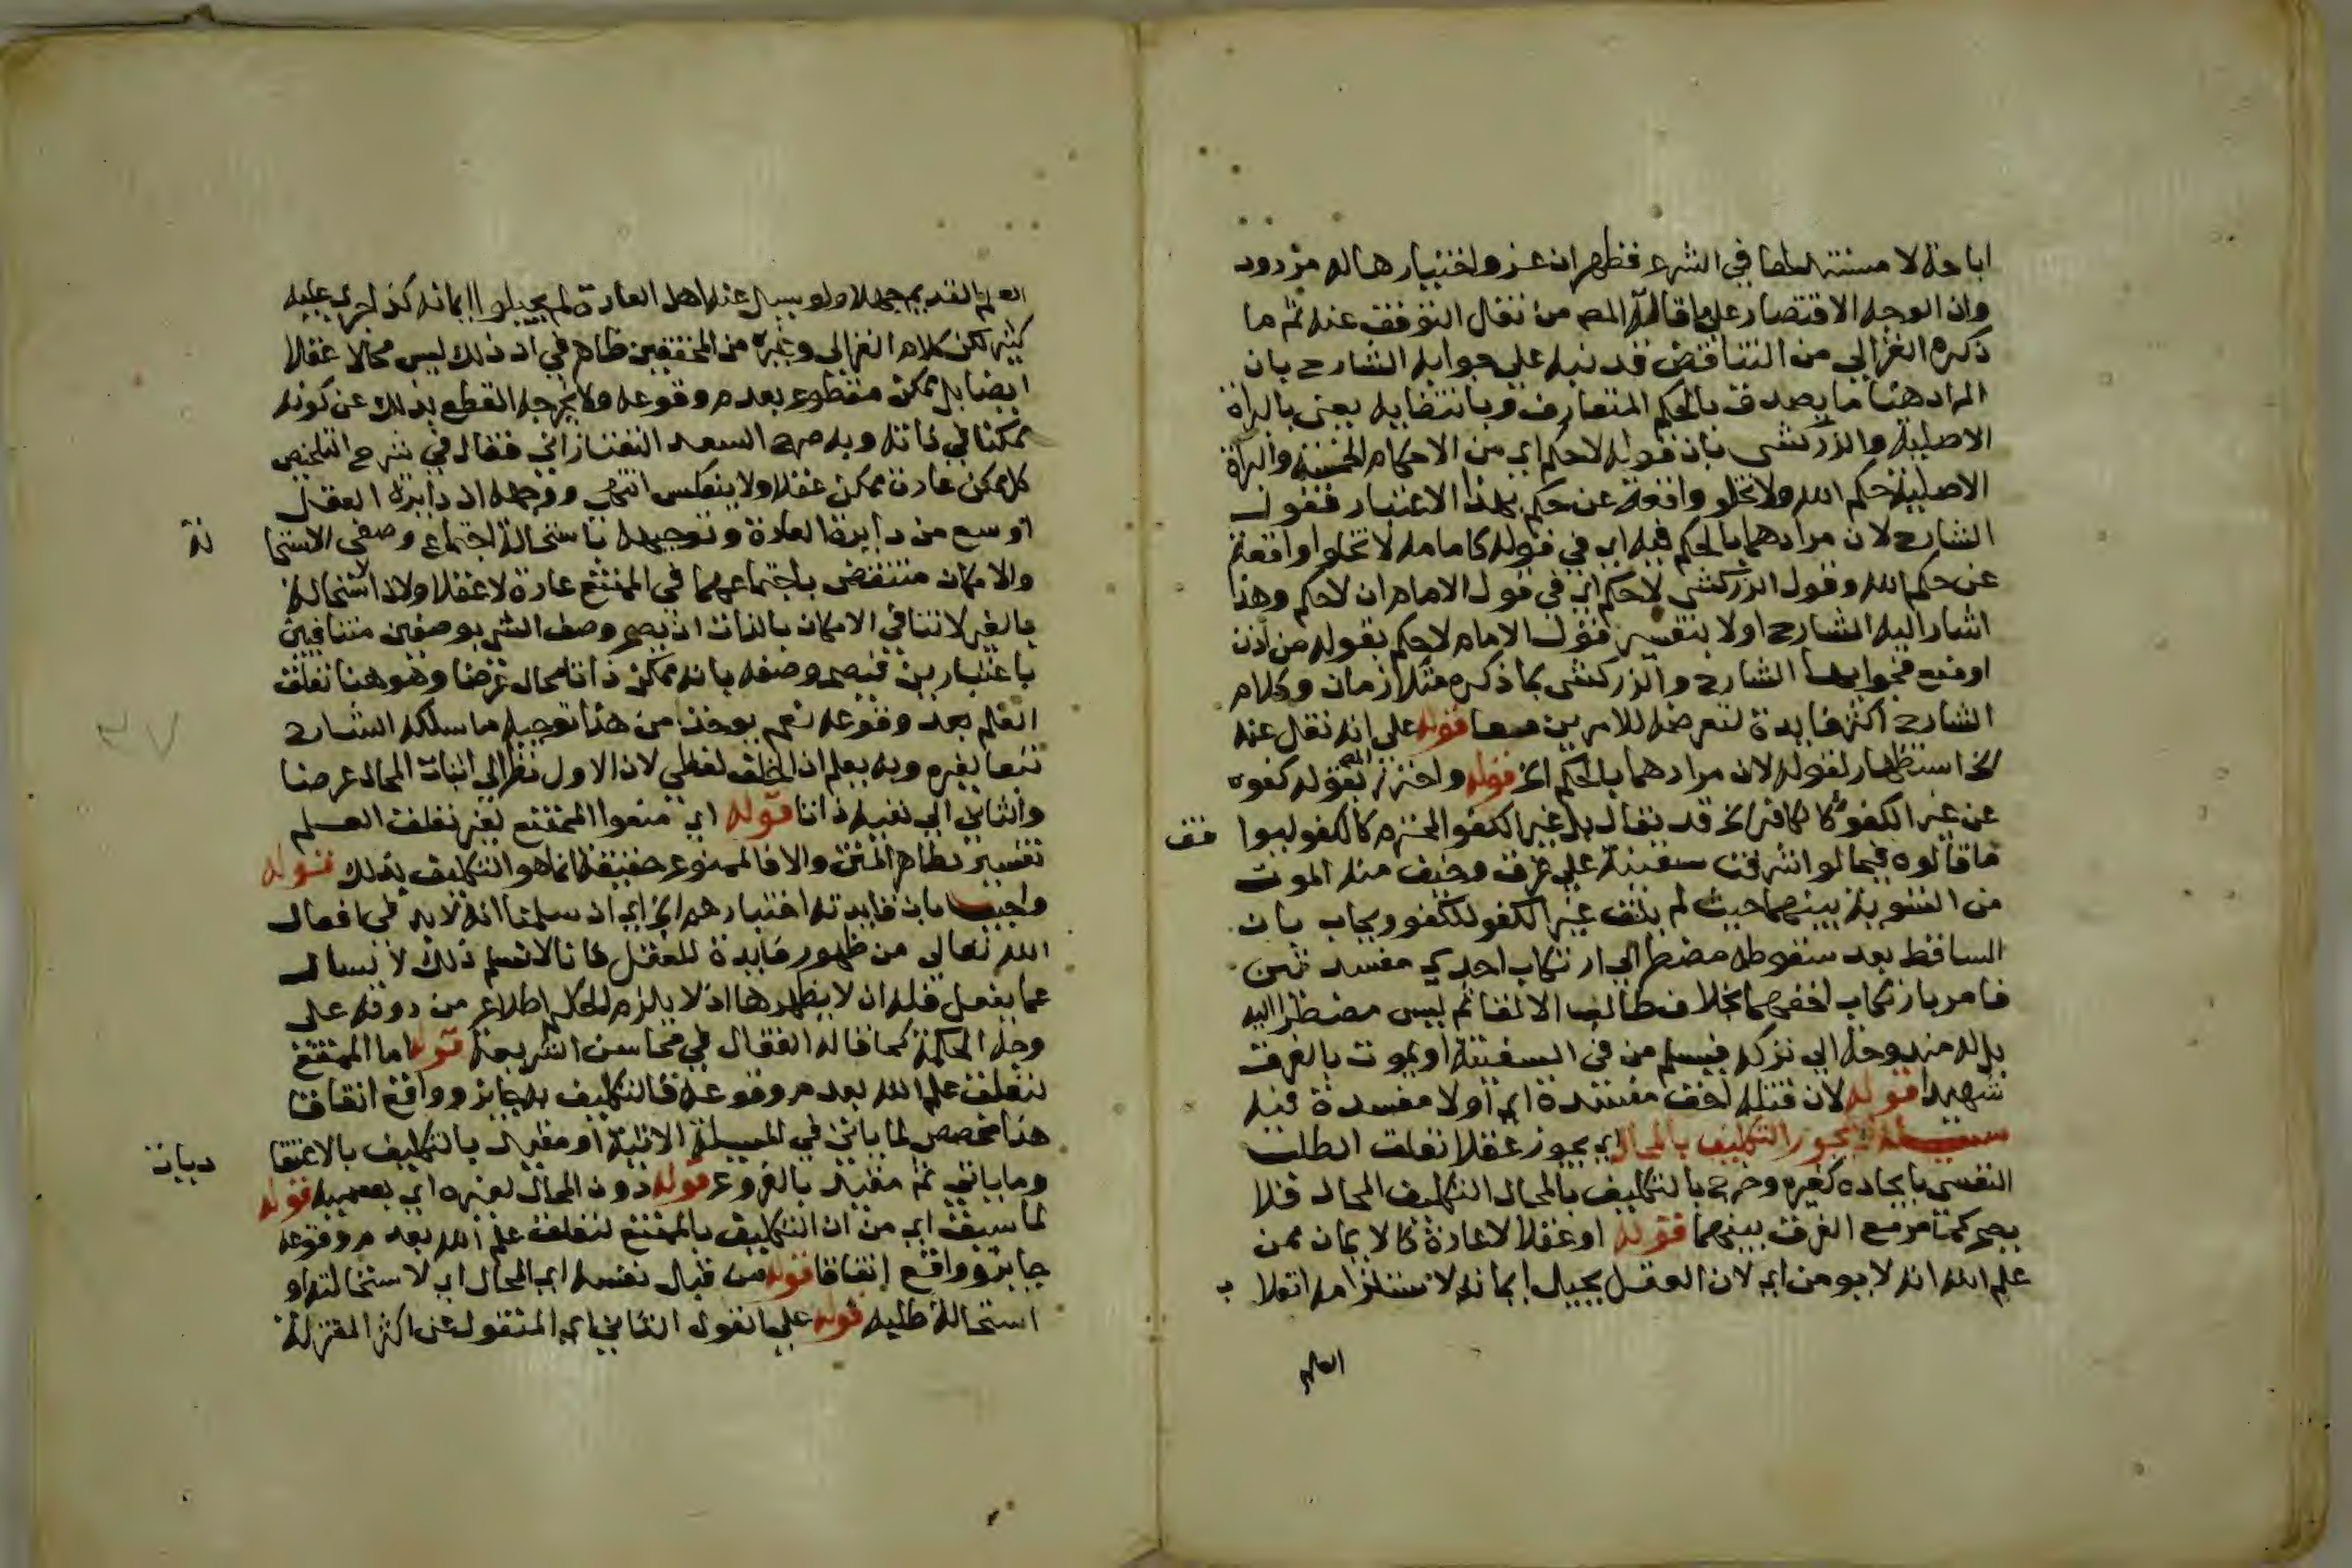 اباحة لا مستندهما في الشرع فظهر ان عزو اختيارها له مردود
وان الوجه الاقتصار على ما قاله المص من نقل التوقف عنه ثم ما
ذكره الغزالي من التناقض قد نبه على جوابه الشارح بان
المراد هنا ما يصدق بالحكم المتعارف وبانتفايه يعني بالبراة
الاصلية والزركشي بان قوله لا حكم اي من الاحكام الخمسة والبراة
الاصلية حكم الله ولا تخلو واقعة عن حكم بهذا الاعتبار فقول
الشارح لان مرادهما بالحكم فيه اي في قوله كامامه لا تخلوا واقعة
عن حكم الله وقول الزركشي لا حكم اي في قول الامام ان لا حكم وهذا
اشار اليه الشارح اولا بتفسير قول الامام لا حكم بقوله من اذن
او منع فجوابهما الشارح والزركشي بما ذكره متلازمان وكلام
الشارح اكثر فايدة لتعرضه للامرين معا قوله على انه نقل عنه
الخ استظهار لقوله لان مرادهما بالحكم الخ قوله واحترز المص بقوله كفوه
عن غير الكفو كالكافر الخ قد يقال بل غير الكفو المحترم كالكفو ليوا فق
ما قالوه فيما لو اشرفت سفينة على غرق وخيف منه الموت
من التسوية بينهما حيث لم يلق غير الكفو للكفو ويجاب بان
الساقط بعد سقوطه مضطر الى ارتكاب احدى مفسدتين
فامر بارتكاب اخفهما بخلاف طالب الالقا ثم ليس مضطرا اليه
بل له مندوحة الى تركه فيسلم من في السفينة او يموت بالغرق
شهيدا قوله لان قتله اخف مفسدة اي او لا مفسدة فيه
مسيلة يجوز التكليف بالمحال اي يجوز عقلا تعلق الطلب
النفسي بايجاده كغيره وخرج بالتكليف بالمحال التكليف المحال فلا
يصح كما مر مع الفرق بينهما قوله او عقلا لا عادة كالايمان ممن
علم الله انه لا يومن اي لان العقل يحيل ايمانه لاستلزامه انقلا ب
العلم
العلم القديم جهلا ولو يسال عنه اهل العادة لم يحيلوا ايمانه كذا جرى عليه
كثير لكن كلام الغزالي وغيره من المحققين ظاهر في ان ذلك ليس محالا عقلا
ايضا بل ممكن مقطوع بعدم وقوعه ولا يخرجه القطع بذلك عن كونه
ممكنا في ذاته وبه صرح السعد التفتازاني فقال في شرح التلخيص
كل ممكن عادة ممكن عقلا ولا ينعكس انتهى ووجهه ان دايرة العقل
اوسع من دايرة العادة وتوجيهه باستحالة اجتماع وصفى الاستحا لة
والامكان منتقض باجتماعهما في الممتنع عادة لا عقلا ولان استحالة
بالغير لا تنافي الامكان بالذات اذ يصح وصف الشي بوصفين متنافيين
باعتبارين فيصح وصفه بانه ممكن ذاتا محال عرضا وهو هنا تعلق
العلم بعدم وقوعه نعم يوخذ من هذا توجيه ما سلكه الشارح
تبعا لغيره وبه يعلم ان الخلف لفظي لان الاول نظر الى اثبات المحال عرضا
والثاني الى نفيه ذاتا قوله اي منعوا الممتنع لغير تعلق العلم
تفسير لظاهر المتن والا فالممنوع حقيقة انما هو التكليف بذلك قوله
واجيب بان فايدته اختبارهم الخ اي ان سلمنا انه لا بد في افعال
الله تعالى من ظهور فايدة للعقل كانا لا نسلم ذلك لا يسال
عما يفعل فله ان لا يظهرها اذ لا يلزم الحكيم اطلاع من دونه على
وجه الحكمة كما قاله القفال في محاسن الشريعة قوله اما الممتنع
لتعلق علم الله بعدم وقوعه فالتكليف به جايز وواقع اتفاقا
هذا مخصص لما ياتي في المسيلة الاتية او مقيد بالتكليف بالاعتقا ديات
وما ياتي ثم مقيد بالفروع قوله دون المحال لغيره اي بقسميه قوله
لما سبق اي من ان التكليف بالممتنع لتعلق علم الله بعدم وقوعه
جايز وواقع اتفاقا قوله من قبيل نفسه اي المحال اي لاستحالته او
استحالة طلبه قوله على القول الثاني اي المنقول عن اكثر المعتزلة